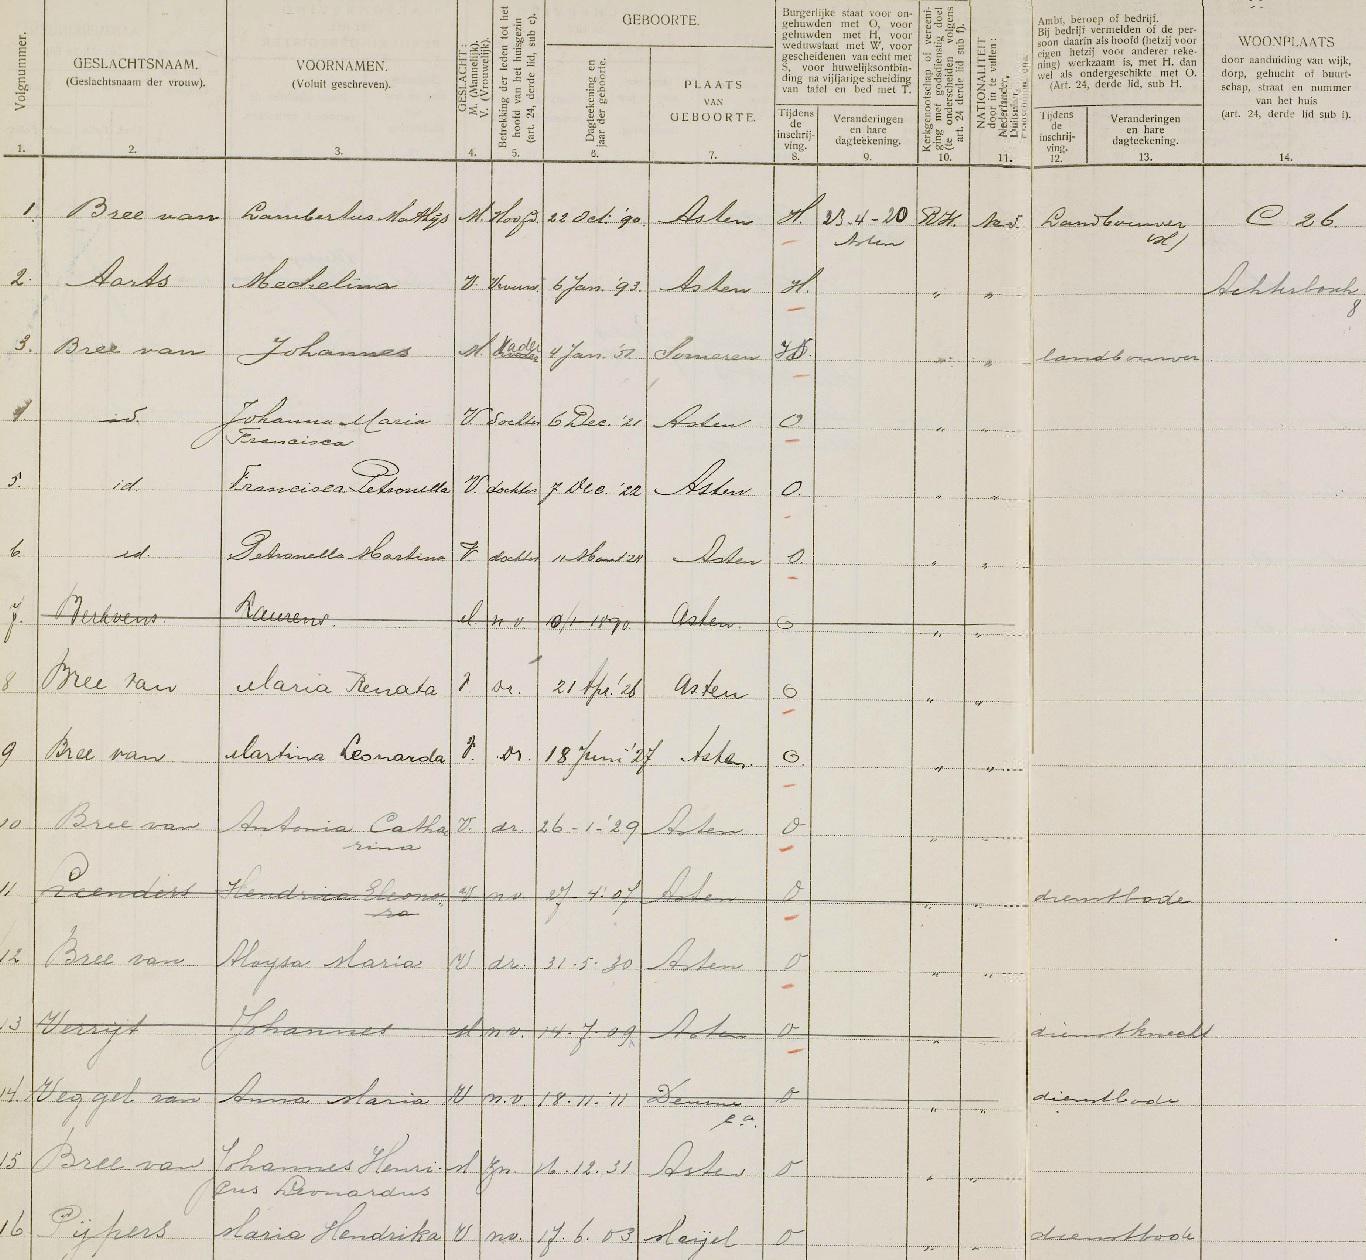 Volgnummer.
1.
GESLACHTSNAAM.
(Geslachtsnaam der vrouw).
2.
VOORNAMEN.
(Voluit geschreven).
3.
GESLACHT:
M. (Mannelijk).
V. (Vrouwelijk).
4.
Betrekking der leden tot het
hoofd van het huisgezin
(art. 24, derde lid, sub c).
5.
GEBOORTE.
Dagteekening en
jaar der geboorte.
6.
PLAATS
VAN
GEBOORTE.
7.
Burgerlijke staat voor on-
gehuwden met O, voor
gehuwden met H, voor
weduwstaat met W, voor
gescheidenen van echt met
S, voor huwelijksontbin-
ding na vijfjarige scheiding
van tafel en bed met T.
Tijdens
de
inschrij-
ving.
8.
Veranderingen
en hare
dagteekening.
9.
Kerkgenootschap of vereeni-
ging met godsdienstig doel
(te onderscheiden volgens
art. 24 derde lid sub f).
10.
NATIONALITEIT
door in te vullen:
Nederlander,
Duitscher,
11.
Ambt, beroep of bedrijf.
Bij bedrijf vermelden of de per-
soon daarin als hoofd (hetzij voor
eigen hetzij voor anderer reke-
ning) werkzaam is, met H. dan
wel als ondergeschikte met O.
(Art. 24, derde lid, sub H.
Tijdens
de
inschrij-
ving.
12.
Veranderingen
en hare
dagteekening.
13.
WOONPLAATS
door aanduiding van wijk,
dorp, gehucht of buurt-
schap, straat en nummer
van het huis
(art. 24, derde lid sub i).
14.
1. Bree van Lambertus Mathijs M. Hoofd. 22 Oct. '90 Asten H. 23-4-20 R.K. Ned. Landbouwer C 26
Asten (H)
2. Aarts Mechelina V. Vrouw. 6 Jan. '93. Asten H. " "
8
3. Bree van Johannes M. Vader 4 Jan. Someren " " landbouwer
4 id. Johanna Maria V. dochter 6 Dec. '21 Asten O " "
Francisca
5. id. Francisca Petronella V. dochter 7 Dec. '22 Asten O. " "
6. id. Petronella Martina V. dochter Asten O. " "
7. Laurens. M n.v. Asten. O " "
8 Bree van Maria Renata V dr. 21 Apr. Asten O " "
9 Bree van Martina Leonarda V. dr. 18 Juni '27 Asten. O. " "
10 Bree van Antonia Catha V. dr. 26-1-'29 Asten O " "
rina
11 Leenders Hendrica Eleono- V nv 27-4-'07 Asten O " " dienstbode
ra
12 Bree van Aloysa Maria V dr. 31-5-30 Asten O " "
13 Verrijt Johannes M nv. 14-7-09 Asten O " dienstknecht
14. Veggel van Anna Maria V n.v 18-11-'11 Deurne O " " dienstbode
c.a.
15 Bree van Johannes Henri- M Zn. 16-12-31 Asten O " "
cus Leonardus
16 Pijpers Maria Hendrika V nv. 17-6-03 Meijel O " " dienstbode